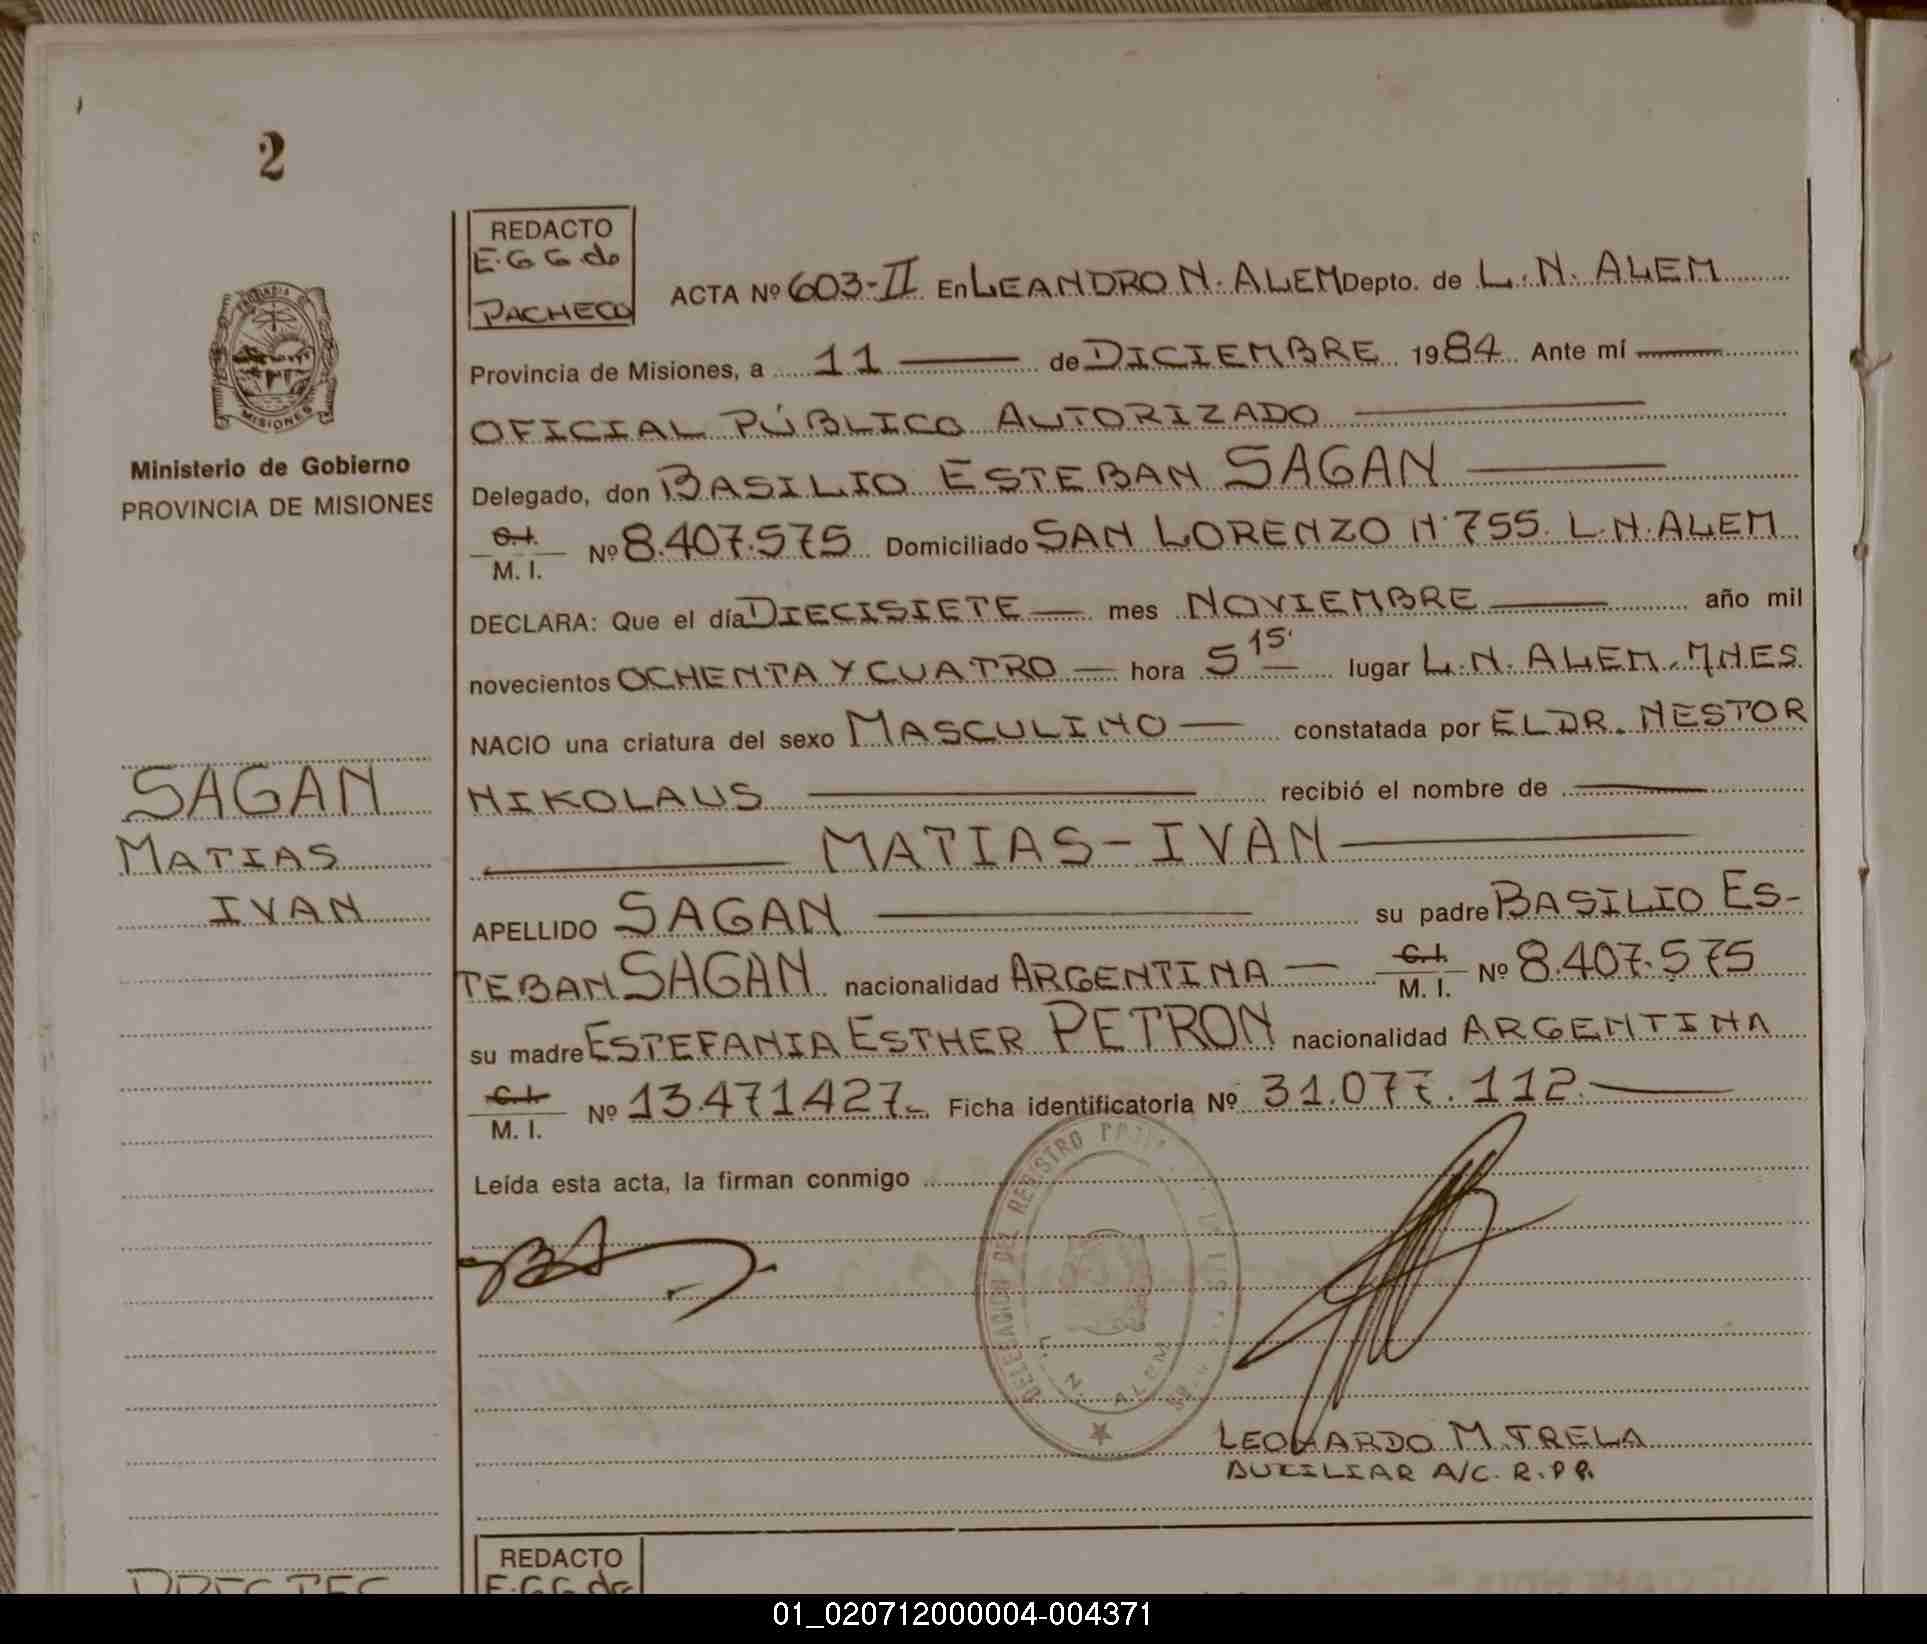 2
REDACTO
E.G G do
PACHECO
ACTA Nº 603-II En LEANDRO N. ALEM Depto. de L. N. ALEM
Provincia de Misiones, a 11 de DICIEMBRE 1984 Ante mí
OFICIAL PÚBLICO AUTORIZADO
Delegado, don BASILIO ESTEBAN SAGAN
C.I.
M. I.
Nº 8.407.575 Domiciliado SAN LORENZO Nº 755. L.N. ALEM
DECLARA: Que el día DIECISIETE mes NOVIEMBRE año mil
novecientos OCHENTA Y CUATRO hora 5 15' lugar L. N. ALEM. MNES.
NACIO una criatura del sexo MASCULINO constatada por EL DR. NESTOR
NIKOLAUS recibió el nombre de
MATIAS-IVAN
APELLIDO SAGAN su padre BASILIO ES-
TEBAN SAGAN nacionalidad ARGENTINA C.I. M. I. Nº 8.407.575
su madre ESTEFANIA ESTHER PETRON nacionalidad ARGENTINA
C.I.
M. I.
Nº 13.471.427. Ficha identificatoria Nº 31.077.112.
Leída esta acta, la firman conmigo
DELEGACION DEL REGISTRO
L. N. ALEM
LEONARDO M. TRELA
AUXILIAR A/C. R.P P.
MISIONES
Ministerio de Gobierno
PROVINCIA DE MISIONES
SAGAN
MATIAS
IVAN
REDACTO
E.G G de
01_020712000004-004371